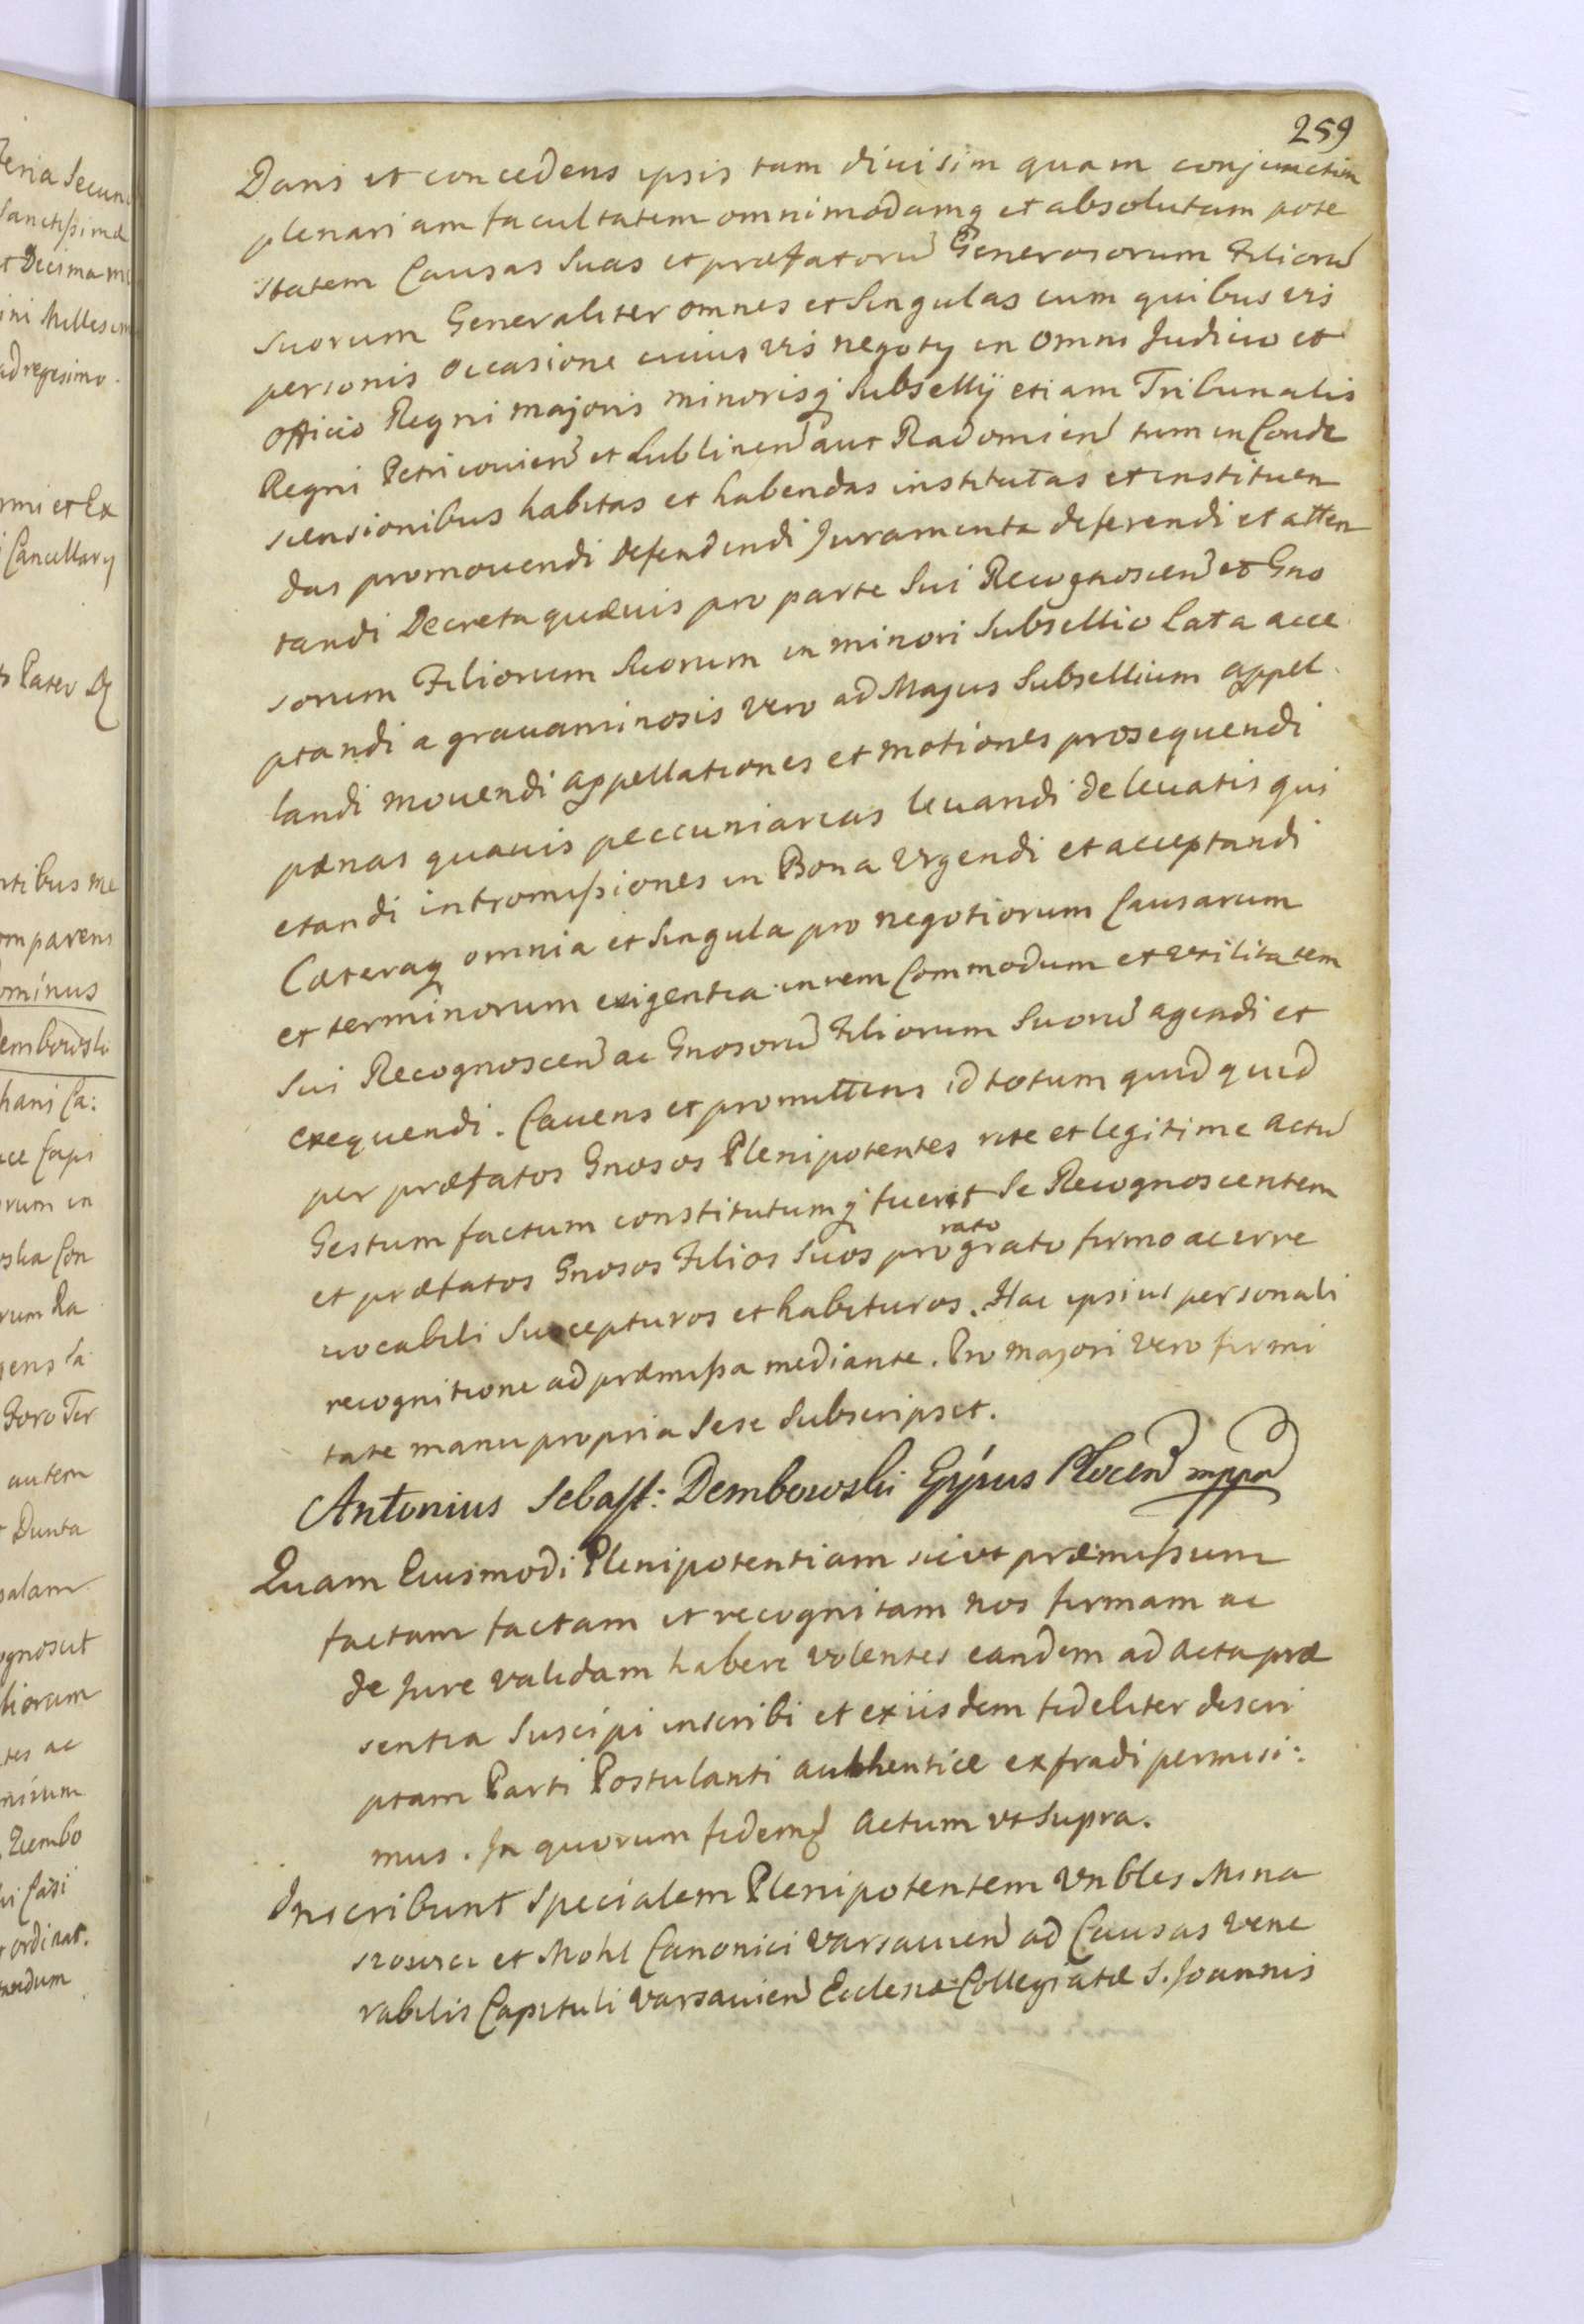 259
Dans et concedens ipsis tam divisim quam conjunctim
plenariam facultatem omnimodamq et absolutam pote
statem Causas Suas et præfatorũ Generosorum Filiorũ
Suorum Generaliter omnes et Singulas cum quibusvis
personis occasione cuiusvis negoty in omni Judicio et
officio Regni majoris minorisq Subsellij etiam Tribunalis
Regni Petricovien et Lublinen aut Radomien tum in Conde
scensionibus habitas et habendas institutas et instituen
das promovendi defendendi Juramenta deferendi et atten
tandi Decreta quævis pro parte Sui Recognoscen et Gno
sorum Filiorum Suorum in minori Subsellio lata acce
ptandi a gravaminosis vero ad Majus Subsellium appel
landi movendi appellationes et motiones prosequendi
pænas quavis peccuniarias levandi de levatis qui
etandi intromißiones in Bona Urgendi et acceptandi
Cæteraq omnia et Singula pro negotiorum Causarum
et terminorum exigentia in rem Commodum et utilitatem
Sui Recognoscen ac Gnosorũ Filiorum Suorũ agendi et
exequendi. Cavens et promittens id totum quidquid
per præfatos Gnosos Plenipotentes rite et legitime actũ
Gestum factum constitutumq fuerit Se Recognoscentem
et præfatos Gnosos Filios Suos pro rato grato firmo ac irre
vocabili Suscepturos et habituros. Hac ipsius personali
recognitione ad præmißa mediante. Pro majori vero firmi
tate manu propria Sese Subscripsit.
Antonius Sebast: Dembowski Eppus Plocen mppa
Quam Eiusmodi Plenipotentiam sicut præmißum
factam factam et recognitam nos firmam ac
de Jure validam habere volentes eandem ad acta præ
sentia Suscipi inscribi et ex iisdem fideliter descri
ptam Parti Postulanti authentice extradi permisi:
mus. In quorum fidemq Actum ut Supra.
Inscribunt Specialem Plenipotentem Vnbles Mina
sowicz et Mohl Canonici Varsavien ad Causas Vene
rabilis Capituli Varsavien Ecclesiæ Collegiatæ S. Joannis